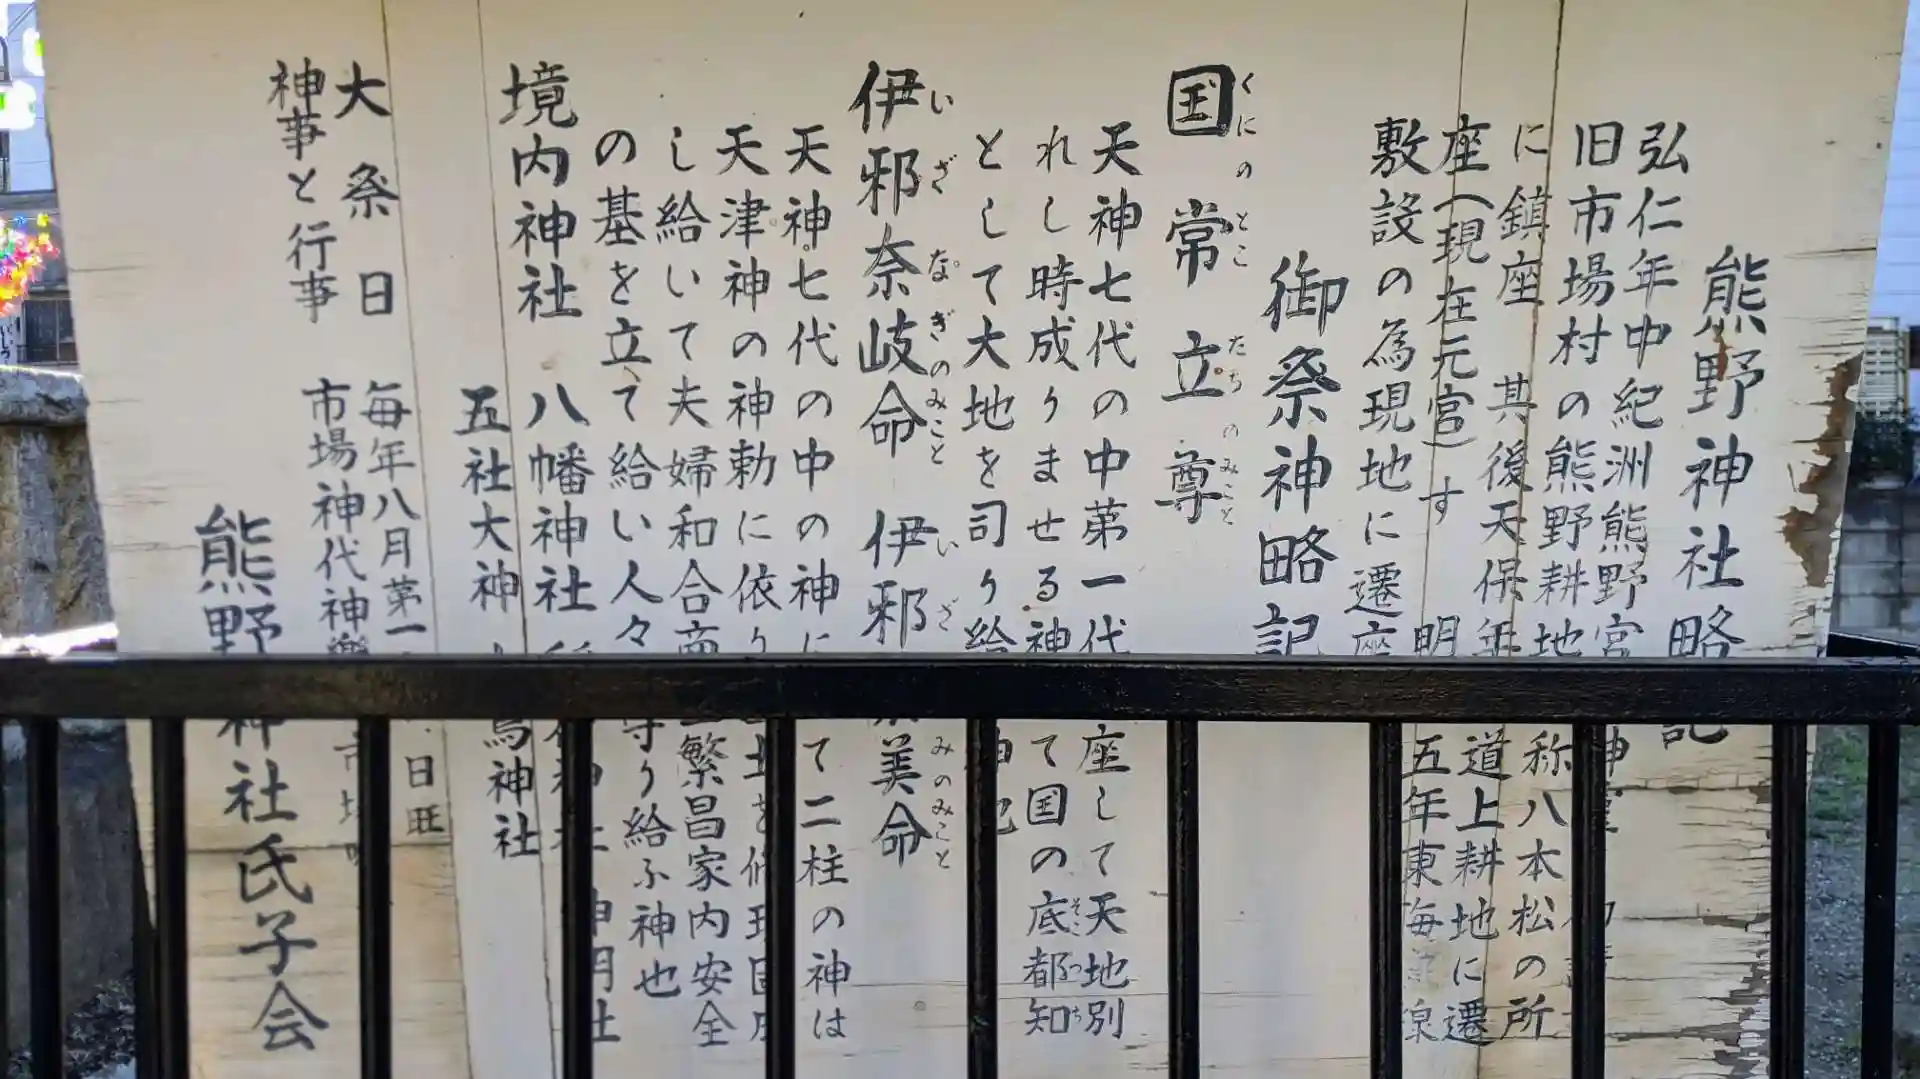 熊野神社略記
弘仁年中紀洲熊野宮神
旧市場村の熊野耕地
称八本松の所
に鎮座 其後天保年
道上耕地に遷
座(現在元宮)す 明
五年東海
線
敷設の為現地に遷座
御祭神略記
国常立尊
くにのとこたちのみこと
天神七代の中第一代
座して天地別
れし時成りませる神
て国の底都知
そこつち
として大地を司り給
神也
伊邪奈岐命 伊邪
いざなぎのみこと いざ
美命
みのみこと
天神七代の中の神に
て二柱の神は
天津神の神勅に依り
し給いて夫婦和合商
繁昌家内安全
の基を立て給い人々
守り給ふ神也
境内神社 八幡神社
神明社
五社大神
神社
大祭日 毎年八月第一
日旺
神事と行事 市場神代神楽
熊野神社氏子会